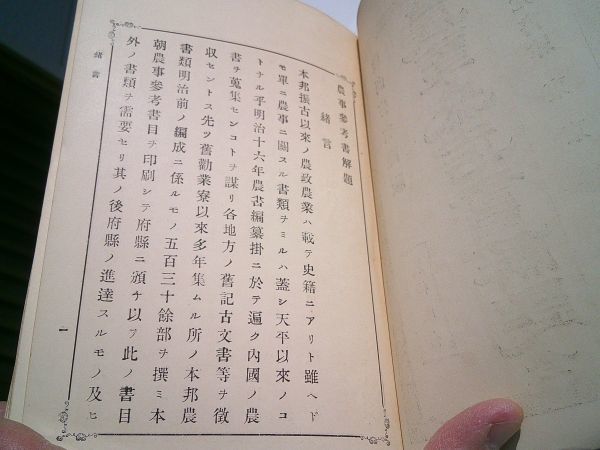 農事參考書解題
緒言
本邦振古以來ノ農政農業ハ載テ史籍ニアリト雖ヘド
モ單ニ農事ニ關スル書類ヲミルハ蓋シ天平以來ノコ
トナル乎明治十六年農書編纂掛ニ於テ遍ク內國ノ農
書ヲ蒐集センコトヲ謀リ各地方ノ舊記古文書等ヲ徵
収セントス先ツ舊勸業寮以來多年集ムル所ノ本邦農
書類明治前ノ編成ニ係ルモノ五百三十餘部ヲ撰ミ本
朝農事參考書目ヲ印刷シテ府縣ニ頒チ以テ此ノ書目
外ノ書類ヲ需要セリ其ノ後府縣ノ進達スルモノ及ヒ
緒言
一